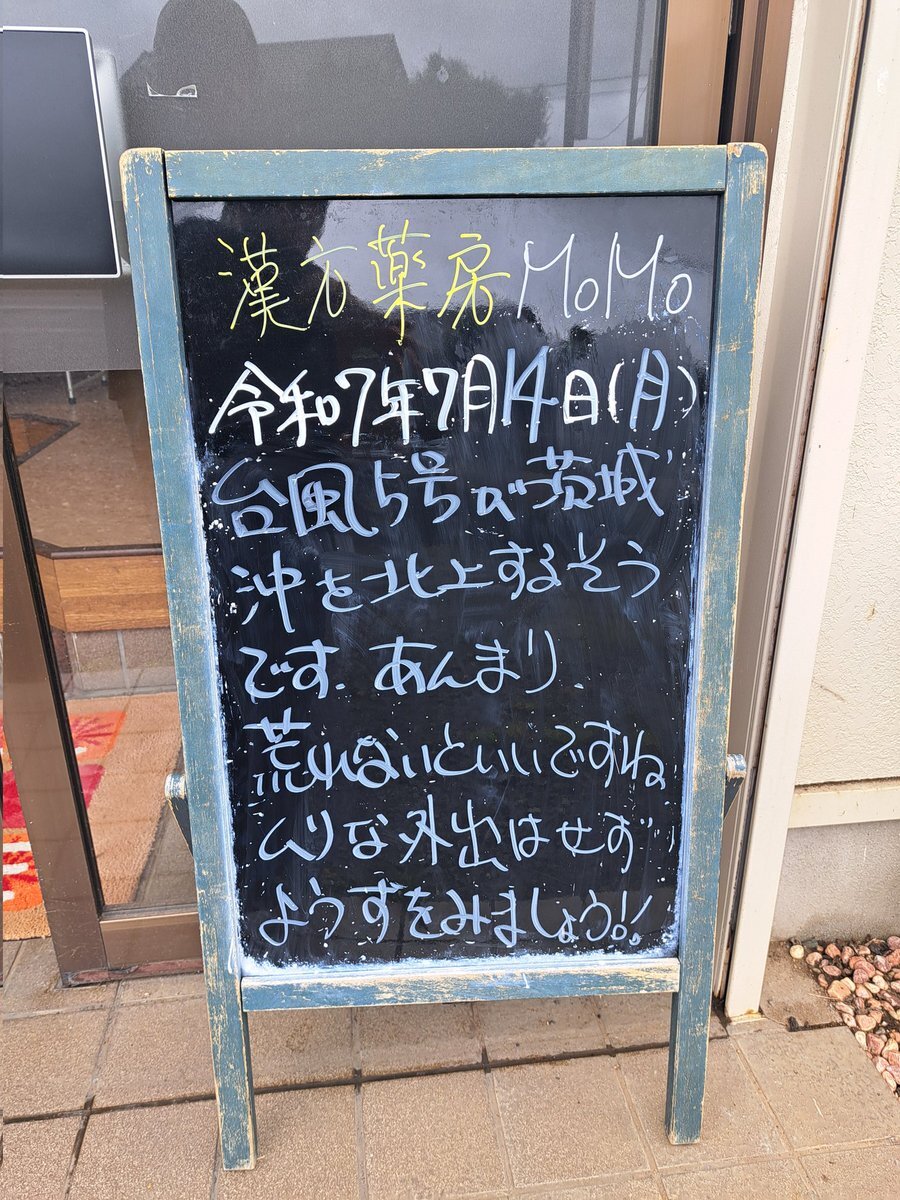 漢方薬房MoMo
令和7年7月14日(月)
台風5号が茨城
沖を北上するそう
です.あんまり.
荒れないといいですね
ムリな外出はせず
ようすをみましょう!!